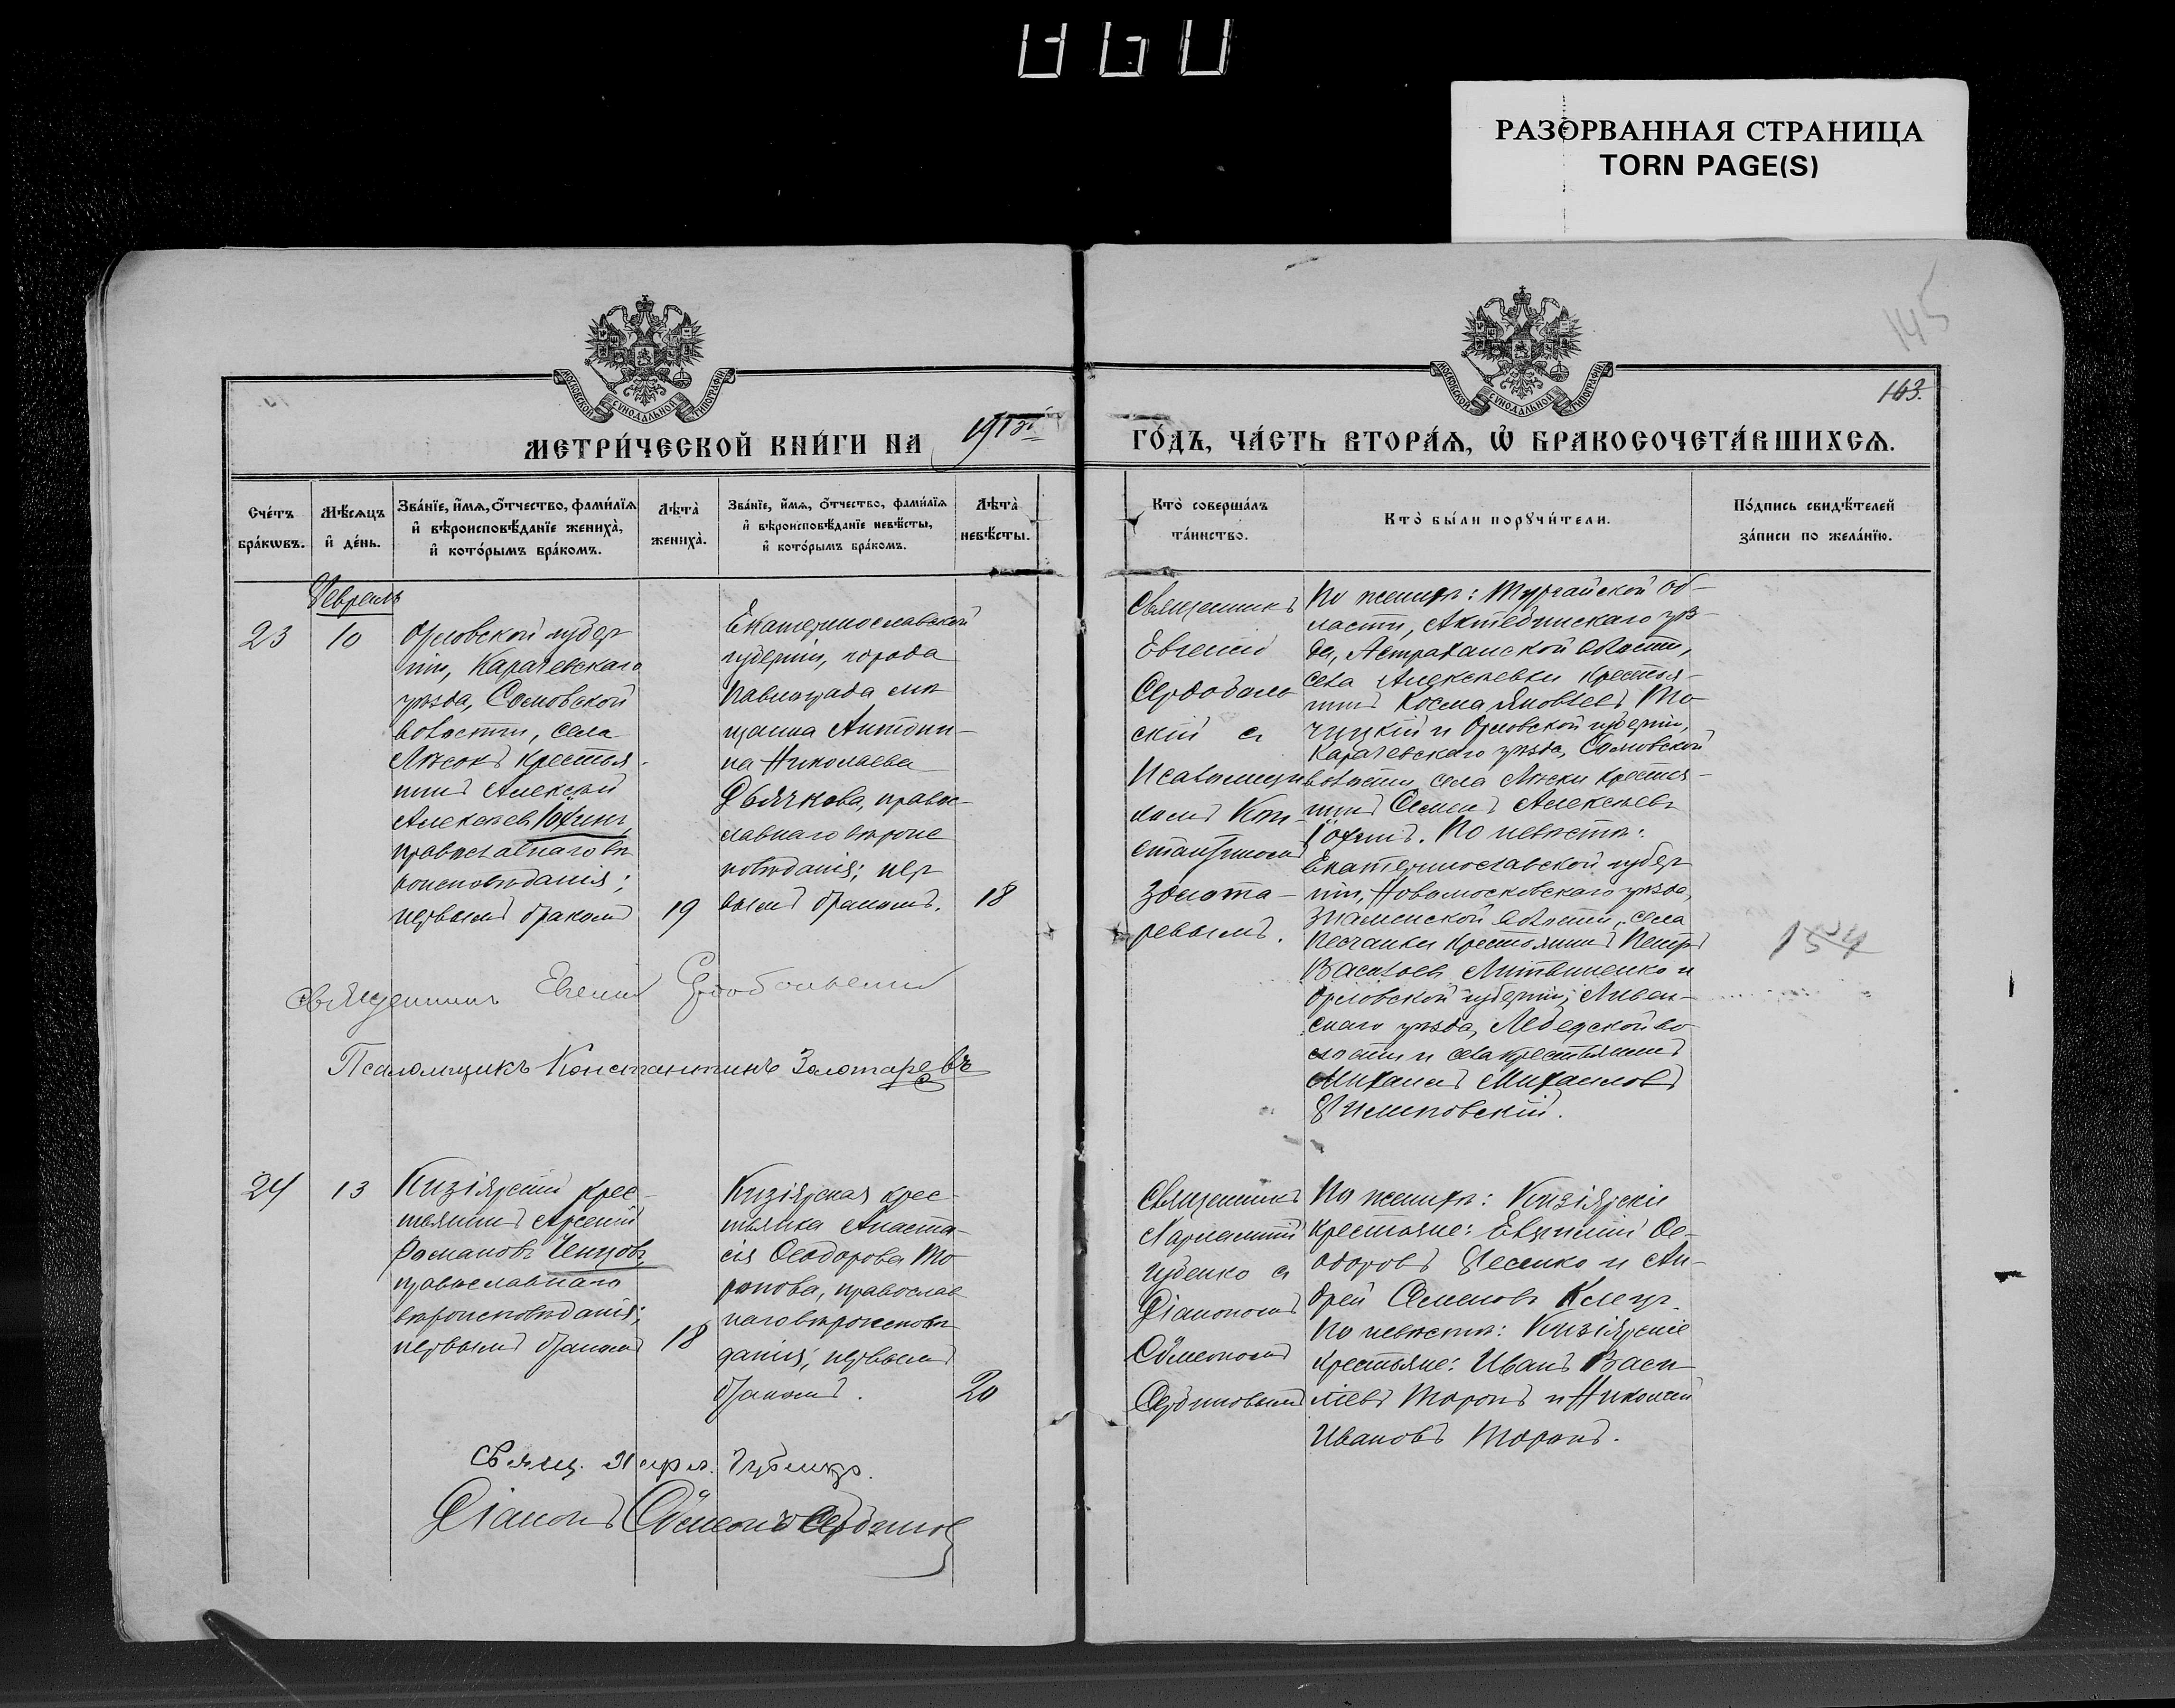 РАЗОРВАННАЯ СТРАНИЦА
TORN PAGE(S)
145
163.
МОСКОВСКОЙ СУНОДАЛЬНОЙ ТИПОГРАФІИ
МОСКОВСКОЙ СУНОДАЛЬНОЙ ТИПОГРАФІИ
МЕТРИ́ЧЕСКОЙ КНИ́ГИ НА
ГО́ДЪ, ЧА́СТЬ ВТОРА́Ѧ, Ѡ҆ БРАКОСОЧЕТА́ВШИХСѦ.
Сче́тъ бра́кѡвъ.
Мѣ́сѧцъ и҆ де́нь.
Зва́нїе, и҆́мѧ, ѻ҆́тчество, фами́лїѧ
и҆ вѣроисповѣ́данїе жениха̀,
и҆ кото́рымъ бра́комъ.
Лѣта̀ жениха̀.
Зва́нїе, и҆́мѧ, ѻ҆́тчество, фами́лїѧ
и҆ вѣроисповѣ́данїе невѣ́сты,
и҆ кото́рымъ бра́комъ.
Лѣта̀ невѣ́сты.
Кто̀ соверша́лъ
та́инство.
Кто̀ бы́ли порꙋчи́тели.
По́дпись свидѣ́телей
за́писи по жела́нїю.
Февраль
23
10
Орловской губер
ніи, Карачевскаго
уѣзда, Сомовской
волости, села
Лѣсокъ крестья-
нинъ Алексѣй
Алексѣевъ Юхинъ,
православнаго вѣ
роисповѣданія;
первымъ бракомъ
19
Екатеринославской
губерніи, города
Павлограда мѣ
щанка Антони-
на Николаева
Дьячкова, правос-
лавнаго вѣроис
повѣданія; пер
вымъ бракомъ.
18
Священникъ
Евгеній
Сердоболь
скій съ
Псаломщи
комъ Кон-
стантиномъ
Золота-
ревымъ.
По женихѣ: Тургайской об-
ласти, Актюбинскаго уѣз-
да, Астраханской волости,
села Алексѣевки крестья-
нинъ Косма Яковлевъ То-
чицкій и Орловской губерніи,
Карачевскаго уѣзда, Сомовской
волости села Лѣски крестья-
нинъ Семенъ Алексѣевъ
Юхинъ. По невѣстѣ:
Екатеринославской губер
ніи, Новомосковскаго уѣзда,
Знаменской волости, села
Песчанки крестьянинъ Петръ
Васильевъ Литвиненко и
Орловской губерніи, Ливен-
скаго уѣзда, Лебедской во
лости и села крестьянинъ
Михаилъ Михаиловъ
Филиповскій.
154
Священникъ Евгеній Сердобольскій
Псаломщикъ Константинъ Золотаревъ
24
13
Кизіярскій крес-
тьянинъ Арсеній
Романовъ Ченцовъ,
православнаго
вѣроисповѣданія;
первымъ бракомъ
18
Кизіярская крес-
тьянка Анаста-
сія Ѳеодорова То
ронова, православ
наго вѣроисповѣ
данія; первымъ
бракомъ.
20
Священникъ
Харлампій
Губенко съ
Діакономъ
Сѵмеономъ
Сербиновымъ
По женихѣ: Кизіярскіе
крестьяне: Евфимій Ѳе-
одоровъ Фесенко и Ан-
дрей Семеновъ
По невѣстѣ: Кизіярскіе
крестьяне: Иванъ Васи
ліевъ Торонъ и Николай
Ивановъ Торонъ.
Свящ. Харл. Губенко.
Діаконъ Сѵмеонъ Сербинов